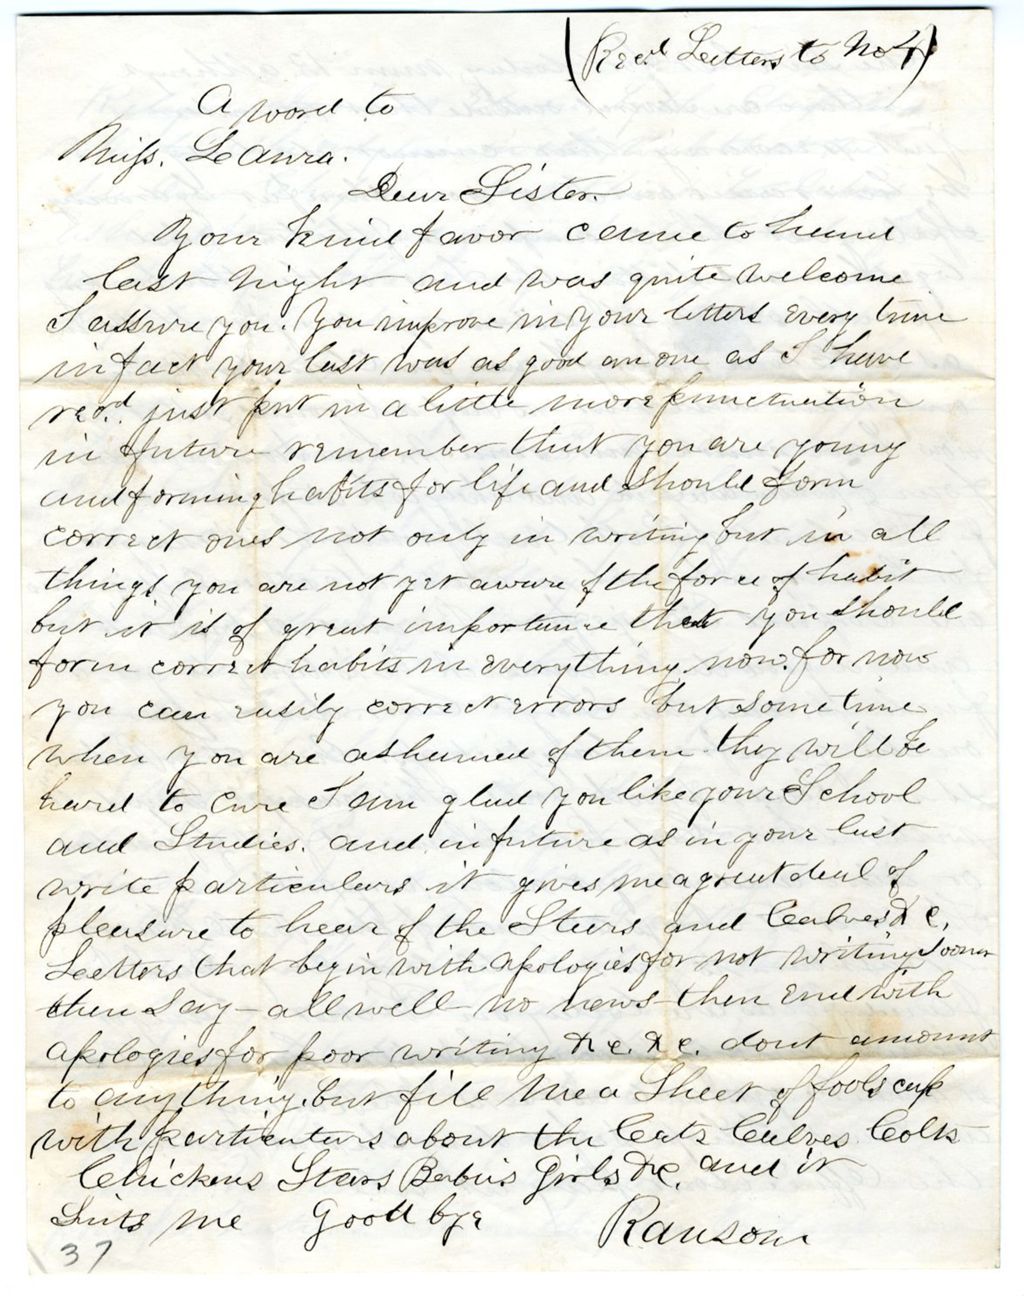 (Recd Letters to No 4)
A word to
Miss. Laura.
Dear Sister.
Your kind favor came to hand
last night and was quite welcome
I assure you. You improve in your letters every time
in fact your last was as good an one as I have
recd. just put in a little more punctuation
in future remember that you are young
and forming habits for life and should form
correct ones not only in writing but in all
things you are not yet aware of the force of habit
but it is of great importance that you should
form correct habits in everything now. for now
you can easily correct errors but some time
when you are ashamed of them they will be
hard to cure I am glad you like your School
and Studies. and in future as in your last
write particulars it gives me a great deal of
pleasure to hear of the Steers and Calves &c.
Letters that begin with apologies for not writing sooner
then say – all well – no news – then end with
apologies for poor writing &c. &c. dont amount
to anything. but fill me a sheet of fools cap
with particulars about the Cats Calves Colts
Chickens Stears Babies Girls &c. and it
Suits me Good bye
Ransom
37